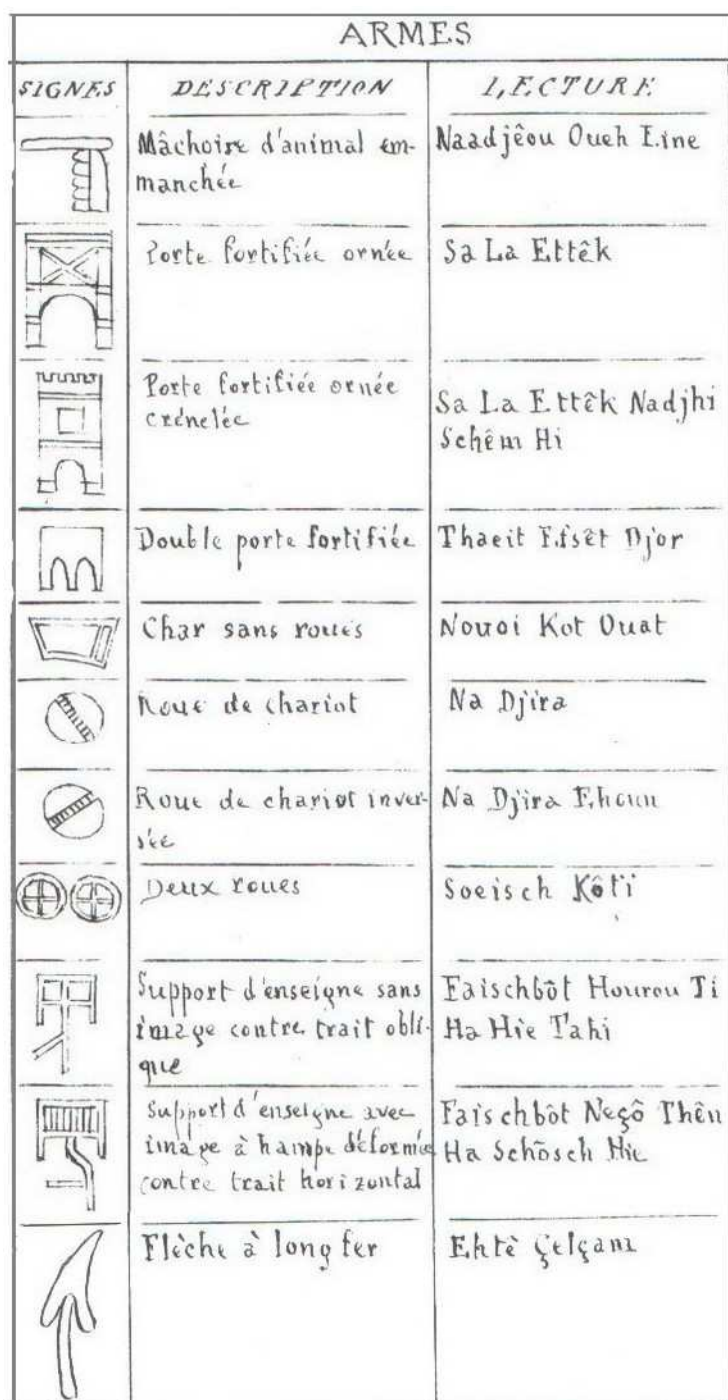 ARMES
SIGNES DESCRIPTION LECTURE
Mâchoire d'animal em-
manchée
Naadjêou Oueh Eine
Porte fortifiée ornée
Sa La Ettêk
Porte fortifiée ornée
crénelée
Sa La Ettêk Nadjhi
Schêm Hi
Double porte fortifiée
Thaeit Efsêt Djor
Char sans roues
Nouoi Kot Ouat
Roue de chariot
Na Djira
Roue de chariot inver-
sée
Na Djira Ehoun
Deux roues
Soeisch Kôti
Support d'enseigne sans
image contre trait obli-
que
Faischbôt Hourou Ti
Ha Hie Tahi
Support d'enseigne avec
image à hampe déformée
contre trait horizontal
Faischbôt Neçô Thên
Ha Schôsch Hie
Flèche à long fer
Ehtè Çelçam